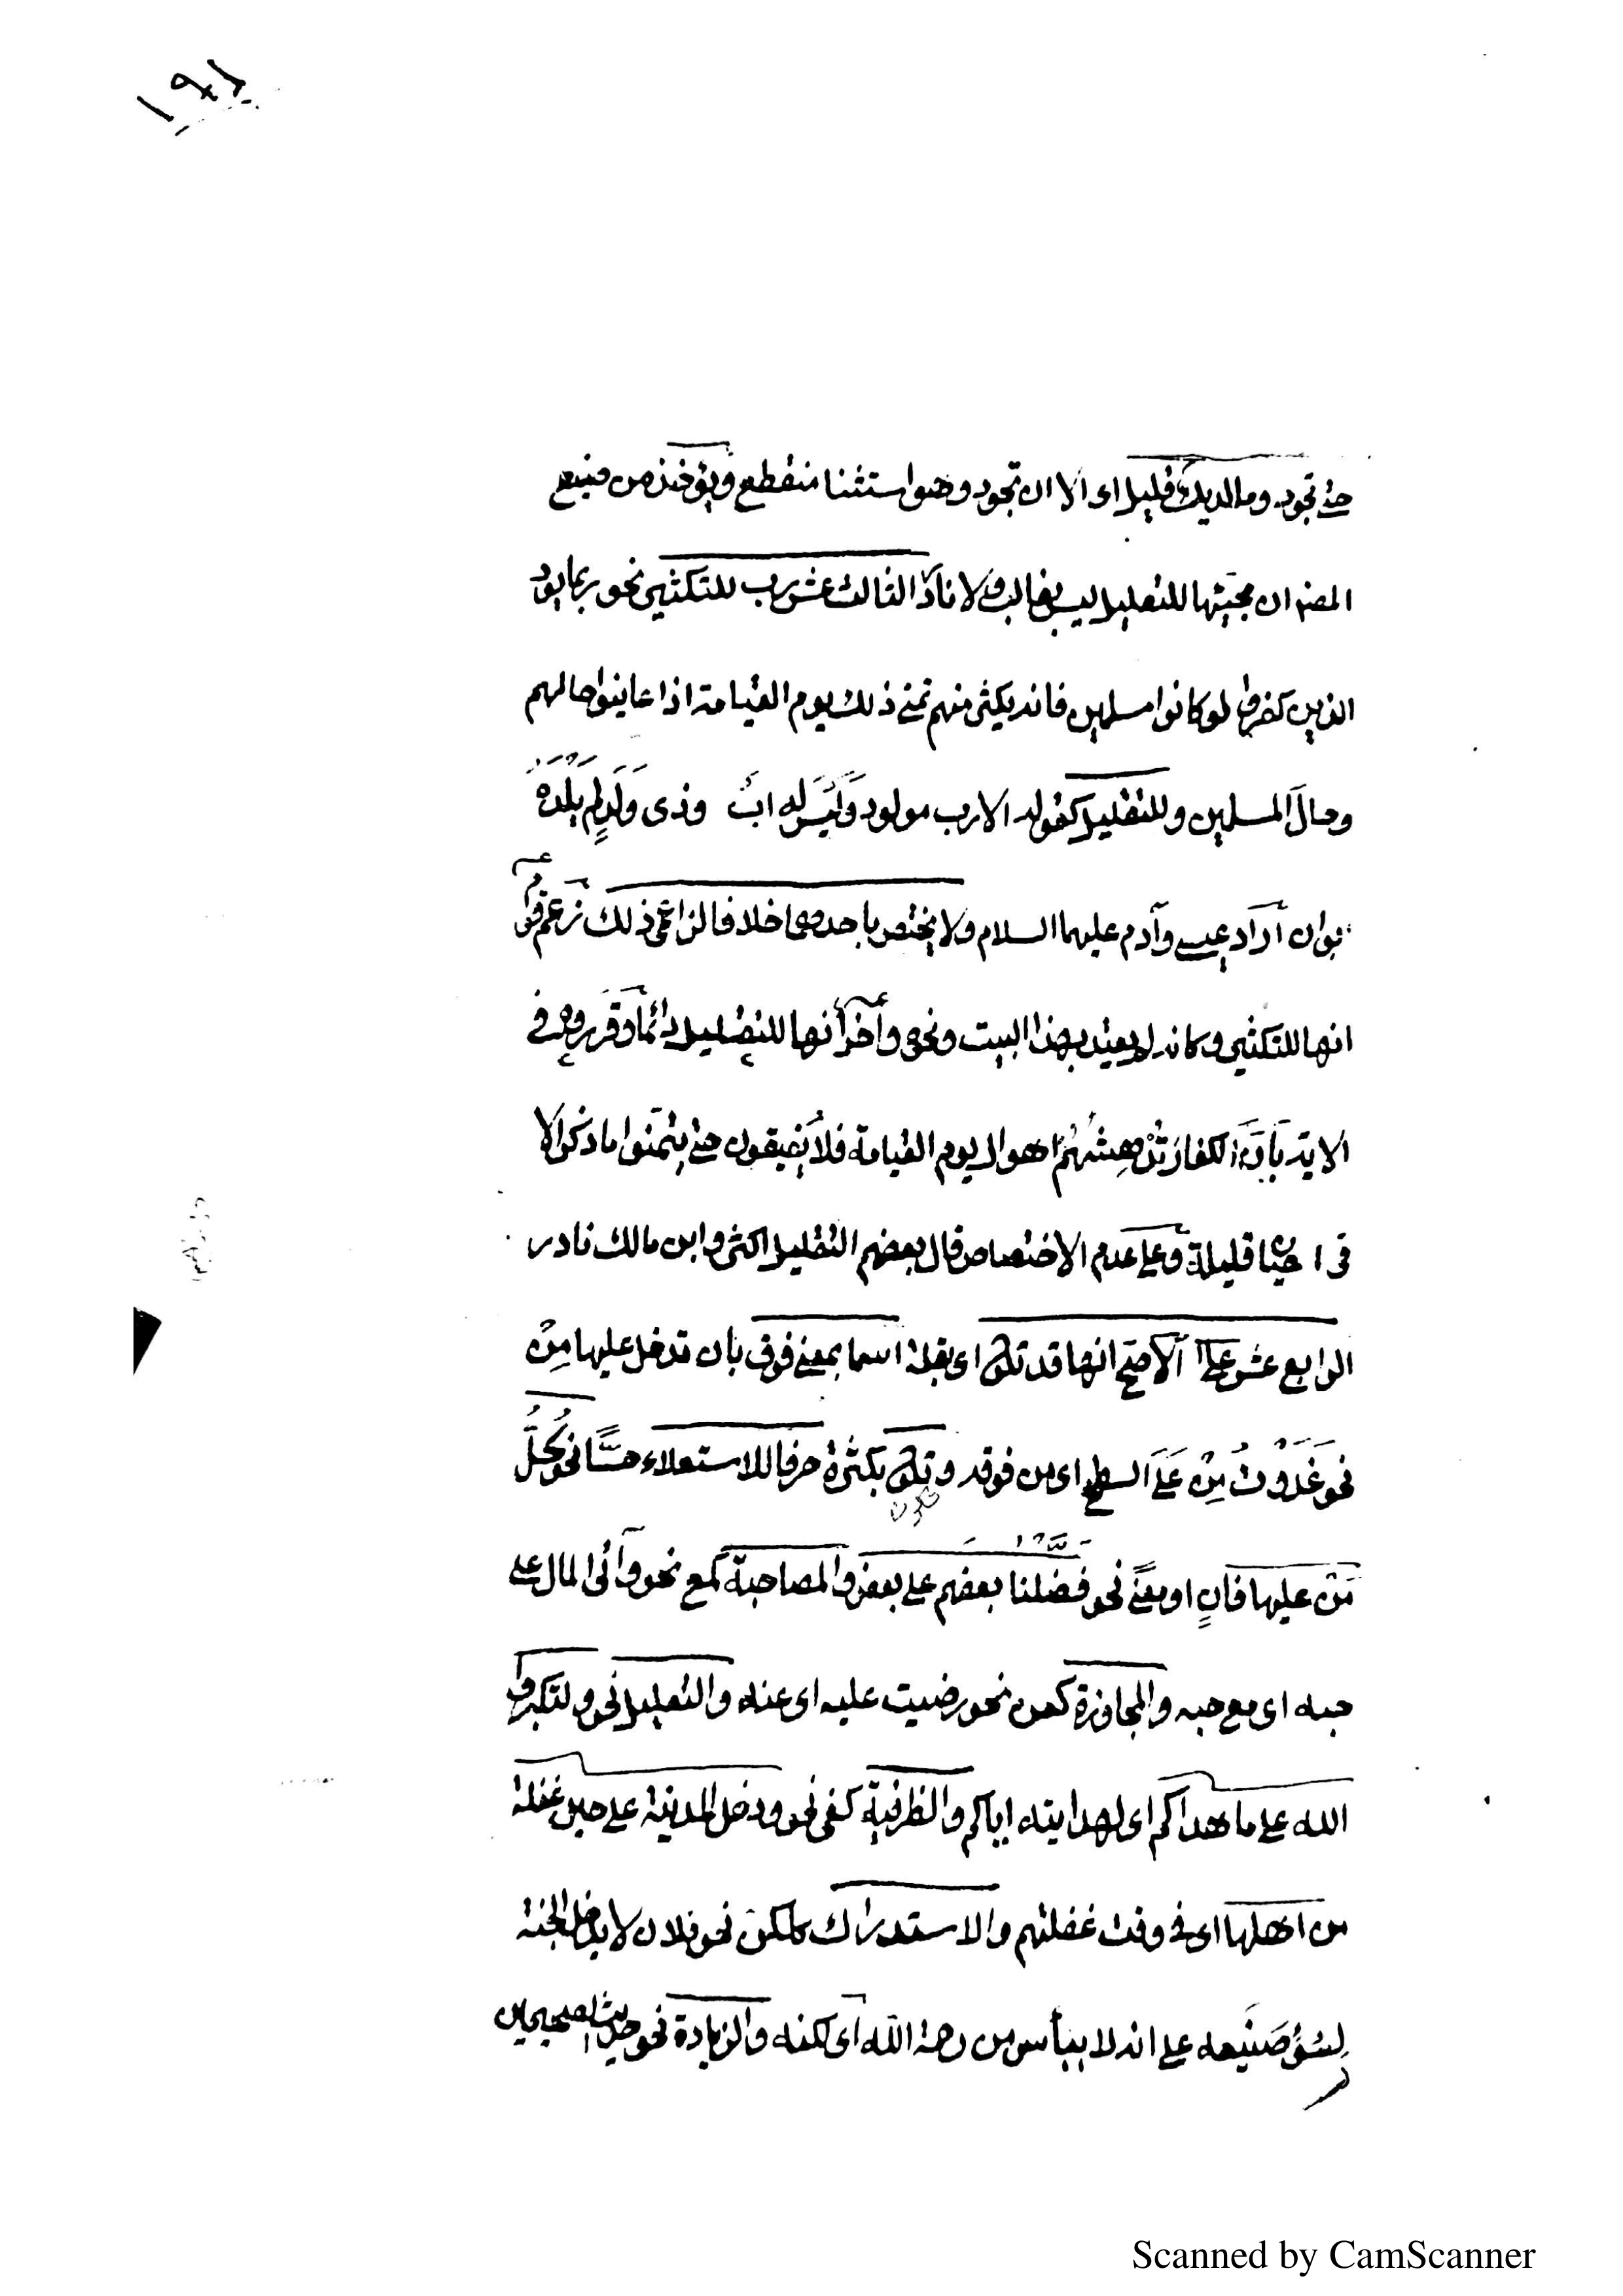 ١٩١
حتى تجود وما لديك قليل اى الا ان تجود وهو استثنا منقطع ويؤخذ من صنيع
المص ان مجيئها للتعليل ليس بغالب ولا نادر الثالث عشر رب للتكثير نحو ربما يود
الذين كفروا لو كانوا مسلمين فانه يكثر منهم تمنى ذلك يوم القيامة اذا عاينوا حالهم
وحالَ المسلمين وللتقليل كقوله الا رب مولود وَلَيْسَ له ابٌ وذى وَلَدٍ لم يَلْدَهُ
بوان اَراد عيسى وآدم عليهما السلام ولا يختص باحدهما خلافا لزاعمى ذلك زعم قوم
انها للتكثير وكانه لم يعتد بهذا البيت ونحوه وآخر أنها للتقليل دائما وقرروه فى
الاية بَاَنَّ الكفار تُدْهِشُهُمْ اهوال يوم القيامة فلا يَفيقون حتى يتمنوا ما ذكر الا
فى احيان قليلة وعلى عدم الاختصاص قال بعضهم التقليل اكثر وابن مالك نادر
الرابع عشر على اَلاصح انها قد تكون اى بقلة اسما بمعنى فوق بان تدخل عليها مِنْ
نحو غَدَوْتُ مِنْ عَلَى السطح اى من فوقه وتكون بكثرة حرفا للاستعلاء حِسًّا نحو كُلُّ
تكون
مَنْ عليها فانٍ او معنًى نحو فضّلنا بعضهم على بعض والمصاحبة كمع نحو وآتى المال على
حبه اى مع حبه والمجاوزة كعن نحو رضيت عليه اى عنه والتعليل نحو ولتكبروا
الله على ما هداكم اى لهدايته اياكم والظرفية كفى نحو ودخل المدينة على حين غفلة
من اهلها اى فى وقت غفلتهم والاستدراك كلكن نحو فلان لا يدخل الجنة
لِسُوْءِ صَنيعه على انه لا ييأس من رحمة الله اى لكنه والزيادة نحو حديث الصحيحين
Scanned by CamScanner